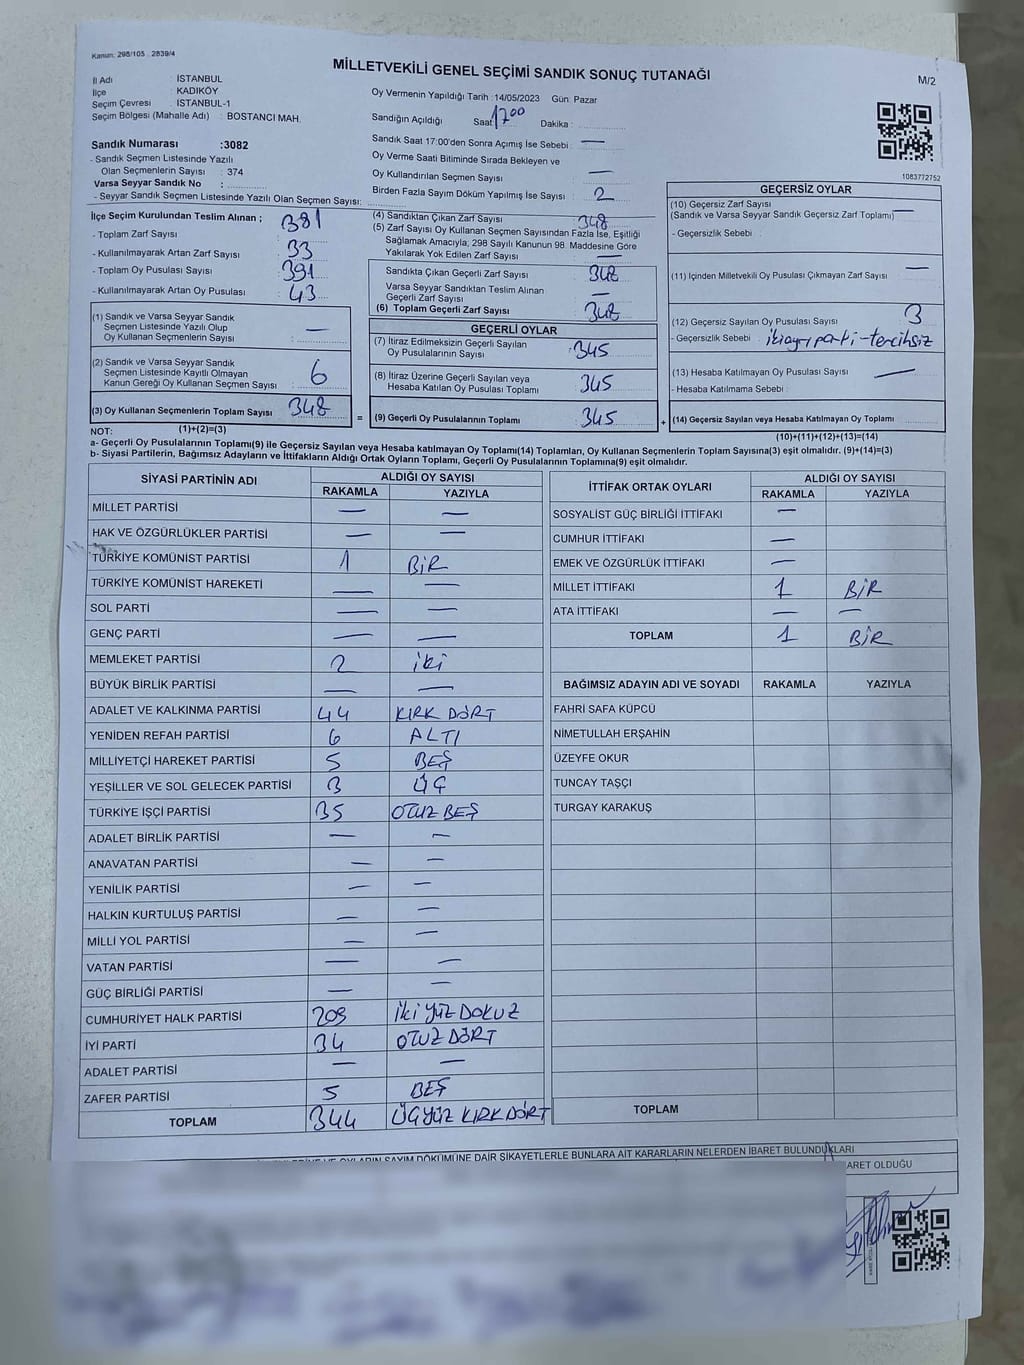 Kanun: 298/105 . 2839/4
MİLLETVEKİLİ GENEL SEÇİMİ SANDIK SONUÇ TUTANAĞI
M/2
İl Adı : İSTANBUL
İlçe : KADIKÖY
Seçim Çevresi : İSTANBUL-1
Seçim Bölgesi (Mahalle Adı) : BOSTANCI MAH.
Sandık Numarası :3082
- Sandık Seçmen Listesinde Yazılı
Olan Seçmenlerin Sayısı : 374
Varsa Seyyar Sandık No :
- Seyyar Sandık Seçmen Listesinde Yazılı Olan Seçmen Sayısı:
Oy Vermenin Yapıldığı Tarih :14/05/2023 Gün: Pazar
Sandığın Açıldığı Saat 17 00 Dakika :
Sandık Saat 17:00'den Sonra Açımış İse Sebebi : —
Oy Verme Saati Bitiminde Sırada Bekleyen ve
Oy Kullandırılan Seçmen Sayısı —
Birden Fazla Sayım Döküm Yapılmış İse Sayısı : 2
1083772752
İlçe Seçim Kurulundan Teslim Alınan ;
- Toplam Zarf Sayısı : 381
- Kullanılmayarak Artan Zarf Sayısı : 33
- Toplam Oy Pusulası Sayısı : 391
- Kullanılmayarak Artan Oy Pusulası : 43
(1) Sandık ve Varsa Seyyar Sandık
Seçmen Listesinde Yazılı Olup
Oy Kullanan Seçmenlerin Sayısı : —
(2) Sandık ve Varsa Seyyar Sandık
Seçmen Listesinde Kayıtlı Olmayan
Kanun Gereği Oy Kullanan Seçmen Sayısı : 6
(3) Oy Kullanan Seçmenlerin Toplam Sayısı 348
(4) Sandıktan Çıkan Zarf Sayısı : 348
(5) Zarf Sayısı Oy Kullanan Seçmen Sayısından Fazla İse, Eşitliği
Sağlamak Amacıyla, 298 Sayılı Kanunun 98. Maddesine Göre
Yakılarak Yok Edilen Zarf Sayısı : —
Sandıkta Çıkan Geçerli Zarf Sayısı : 348
Varsa Seyyar Sandıktan Teslim Alınan
Geçerli Zarf Sayısı : —
(6) Toplam Geçerli Zarf Sayısı : 348
GEÇERLİ OYLAR
(7) İtiraz Edilmeksizin Geçerli Sayılan
Oy Pusulalarının Sayısı : 345
(8) İtiraz Üzerine Geçerli Sayılan veya
Hesaba Katılan Oy Pusulası Toplamı 345
= (9) Geçerli Oy Pusulalarının Toplamı 345
GEÇERSİZ OYLAR
(10) Geçersiz Zarf Sayısı —
(Sandık ve Varsa Seyyar Sandık Geçersiz Zarf Toplamı)
- Geçersizlik Sebebi :
(11) İçinden Milletvekili Oy Pusulası Çıkmayan Zarf Sayısı —
(12) Geçersiz Sayılan Oy Pusulası Sayısı : 3
- Geçersizlik Sebebi ikiayrıparti-tercihsiz
(13) Hesaba Katılmayan Oy Pusulası Sayısı : —
- Hesaba Katılmama Sebebi :
+ (14) Geçersiz Sayılan veya Hesaba Katılmayan Oy Toplamı
NOT: (1)+(2)=(3)
(10)+(11)+(12)+(13)=(14)
a- Geçerli Oy Pusulalarının Toplamı(9) ile Geçersiz Sayılan veya Hesaba katılmayan Oy Toplamı(14) Toplamları, Oy Kullanan Seçmenlerin Toplam Sayısına(3) eşit olmalıdır. (9)+(14)=(3)
b- Siyasi Partilerin, Bağımsız Adayların ve İttifakların Aldığı Ortak Oyların Toplamı, Geçerli Oy Pusulalarının Toplamına(9) eşit olmalıdır.
SİYASİ PARTİNİN ADI
ALDIĞI OY SAYISI
RAKAMLA YAZIYLA
MİLLET PARTİSİ — —
HAK VE ÖZGÜRLÜKLER PARTİSİ — —
TÜRKİYE KOMÜNİST PARTİSİ 1 BİR
TÜRKİYE KOMÜNİST HAREKETİ — —
SOL PARTİ — —
GENÇ PARTİ — —
MEMLEKET PARTİSİ 2 iki
BÜYÜK BİRLİK PARTİSİ — —
ADALET VE KALKINMA PARTİSİ 44 KIRK DÖRT
YENİDEN REFAH PARTİSİ 6 ALTI
MİLLİYETÇİ HAREKET PARTİSİ 5 BEŞ
YEŞİLLER VE SOL GELECEK PARTİSİ 3 ÜÇ
TÜRKİYE İŞÇİ PARTİSİ 35 OTUZ BEŞ
ADALET BİRLİK PARTİSİ — —
ANAVATAN PARTİSİ — —
YENİLİK PARTİSİ — —
HALKIN KURTULUŞ PARTİSİ — —
MİLLİ YOL PARTİSİ — —
VATAN PARTİSİ — —
GÜÇ BİRLİĞİ PARTİSİ — —
CUMHURİYET HALK PARTİSİ 209 İki YÜZ DOKUZ
İYİ PARTİ 34 OTUZ DÖRT
ADALET PARTİSİ — —
ZAFER PARTİSİ 5 BEŞ
TOPLAM 344 ÜÇ YÜZ KIRK DÖRT
İTTİFAK ORTAK OYLARI
ALDIĞI OY SAYISI
RAKAMLA YAZIYLA
SOSYALİST GÜÇ BİRLİĞİ İTTİFAKI —
CUMHUR İTTİFAKI —
EMEK VE ÖZGÜRLÜK İTTİFAKI —
MİLLET İTTİFAKI 1 BİR
ATA İTTİFAKI — —
TOPLAM 1 BİR
BAĞIMSIZ ADAYIN ADI VE SOYADI RAKAMLA YAZIYLA
FAHRİ SAFA KÜPCÜ
NİMETULLAH ERŞAHİN
ÜZEYFE OKUR
TUNCAY TAŞÇI
TURGAY KARAKUŞ
TOPLAM
OYLARIN SAYIM DÖKÜMÜNE DAİR ŞİKAYETLERLE BUNLARA AİT KARARLARIN NELERDEN İBARET BULUNDUKLARI
BARET OLDUĞU